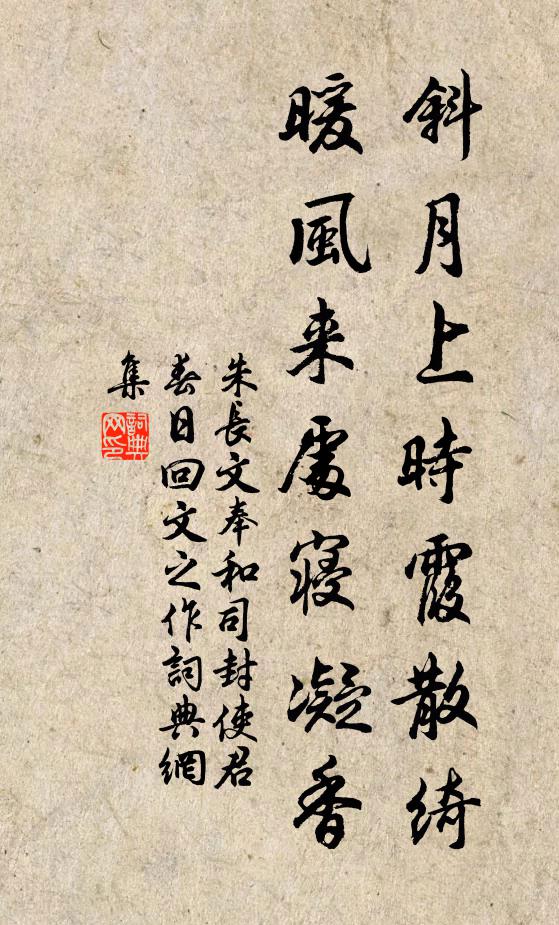 斜月上時霞散綺
暖風来處寢凝香
朱長文奉和司封使君
春日回文之作詞典網
集
詞典
网印